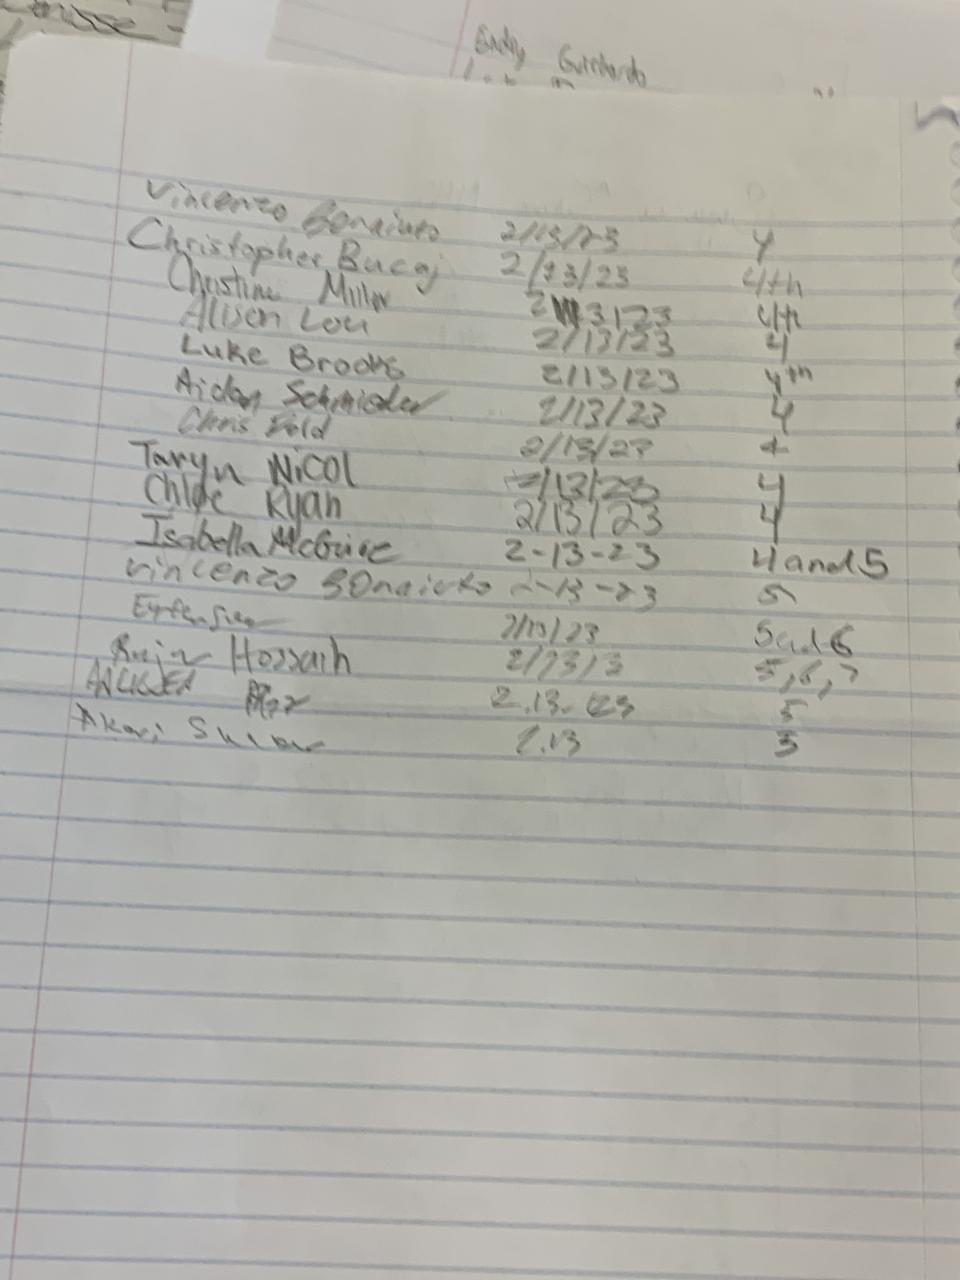 Endry Guichardo
Vincenzo Bonaiuto 2/13/23 4
Christopher Bucaj 2/13/23 4th
Christine Miller 2/13/23 4th
Alison Lou 2/13/23 4
Luke Brooks 2/13/23 4th
Aidan Schmieder 2/13/23 4
Chris Fold 2/13/23 4
Taryn Nicol 2/13/23 4
Chloe Ryan 2/13/23 4
Isabella McGuire 2-13-23 4 and 5
Vincenzo Bonaiuto 2-13-23 5
2/13/23 5 and 6
Hossain 2/13/3 5,6,7
2.13.23 5
Akari 2.13 5